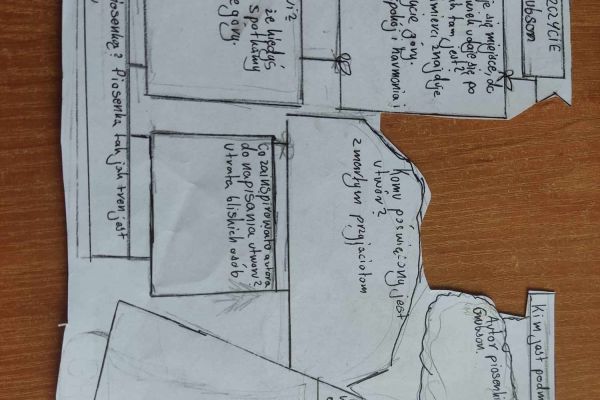 ZCZYCIE
ubson
je się miejsce, do
wiek udaje się po
tam jest?
mierci znajduje
ycie góry.
pokój i harmonia i
Kim jest podm
Autor piosenki
Grubson.
Komu poświęcony jest
utwór?
zmarłym przyjaciołom
że kiedyś
spotkamy
góry.
Co zainspirowało autora
do napisania utworu?
utrata bliskich osób
Piosenką? Piosenka tak jak tren jest